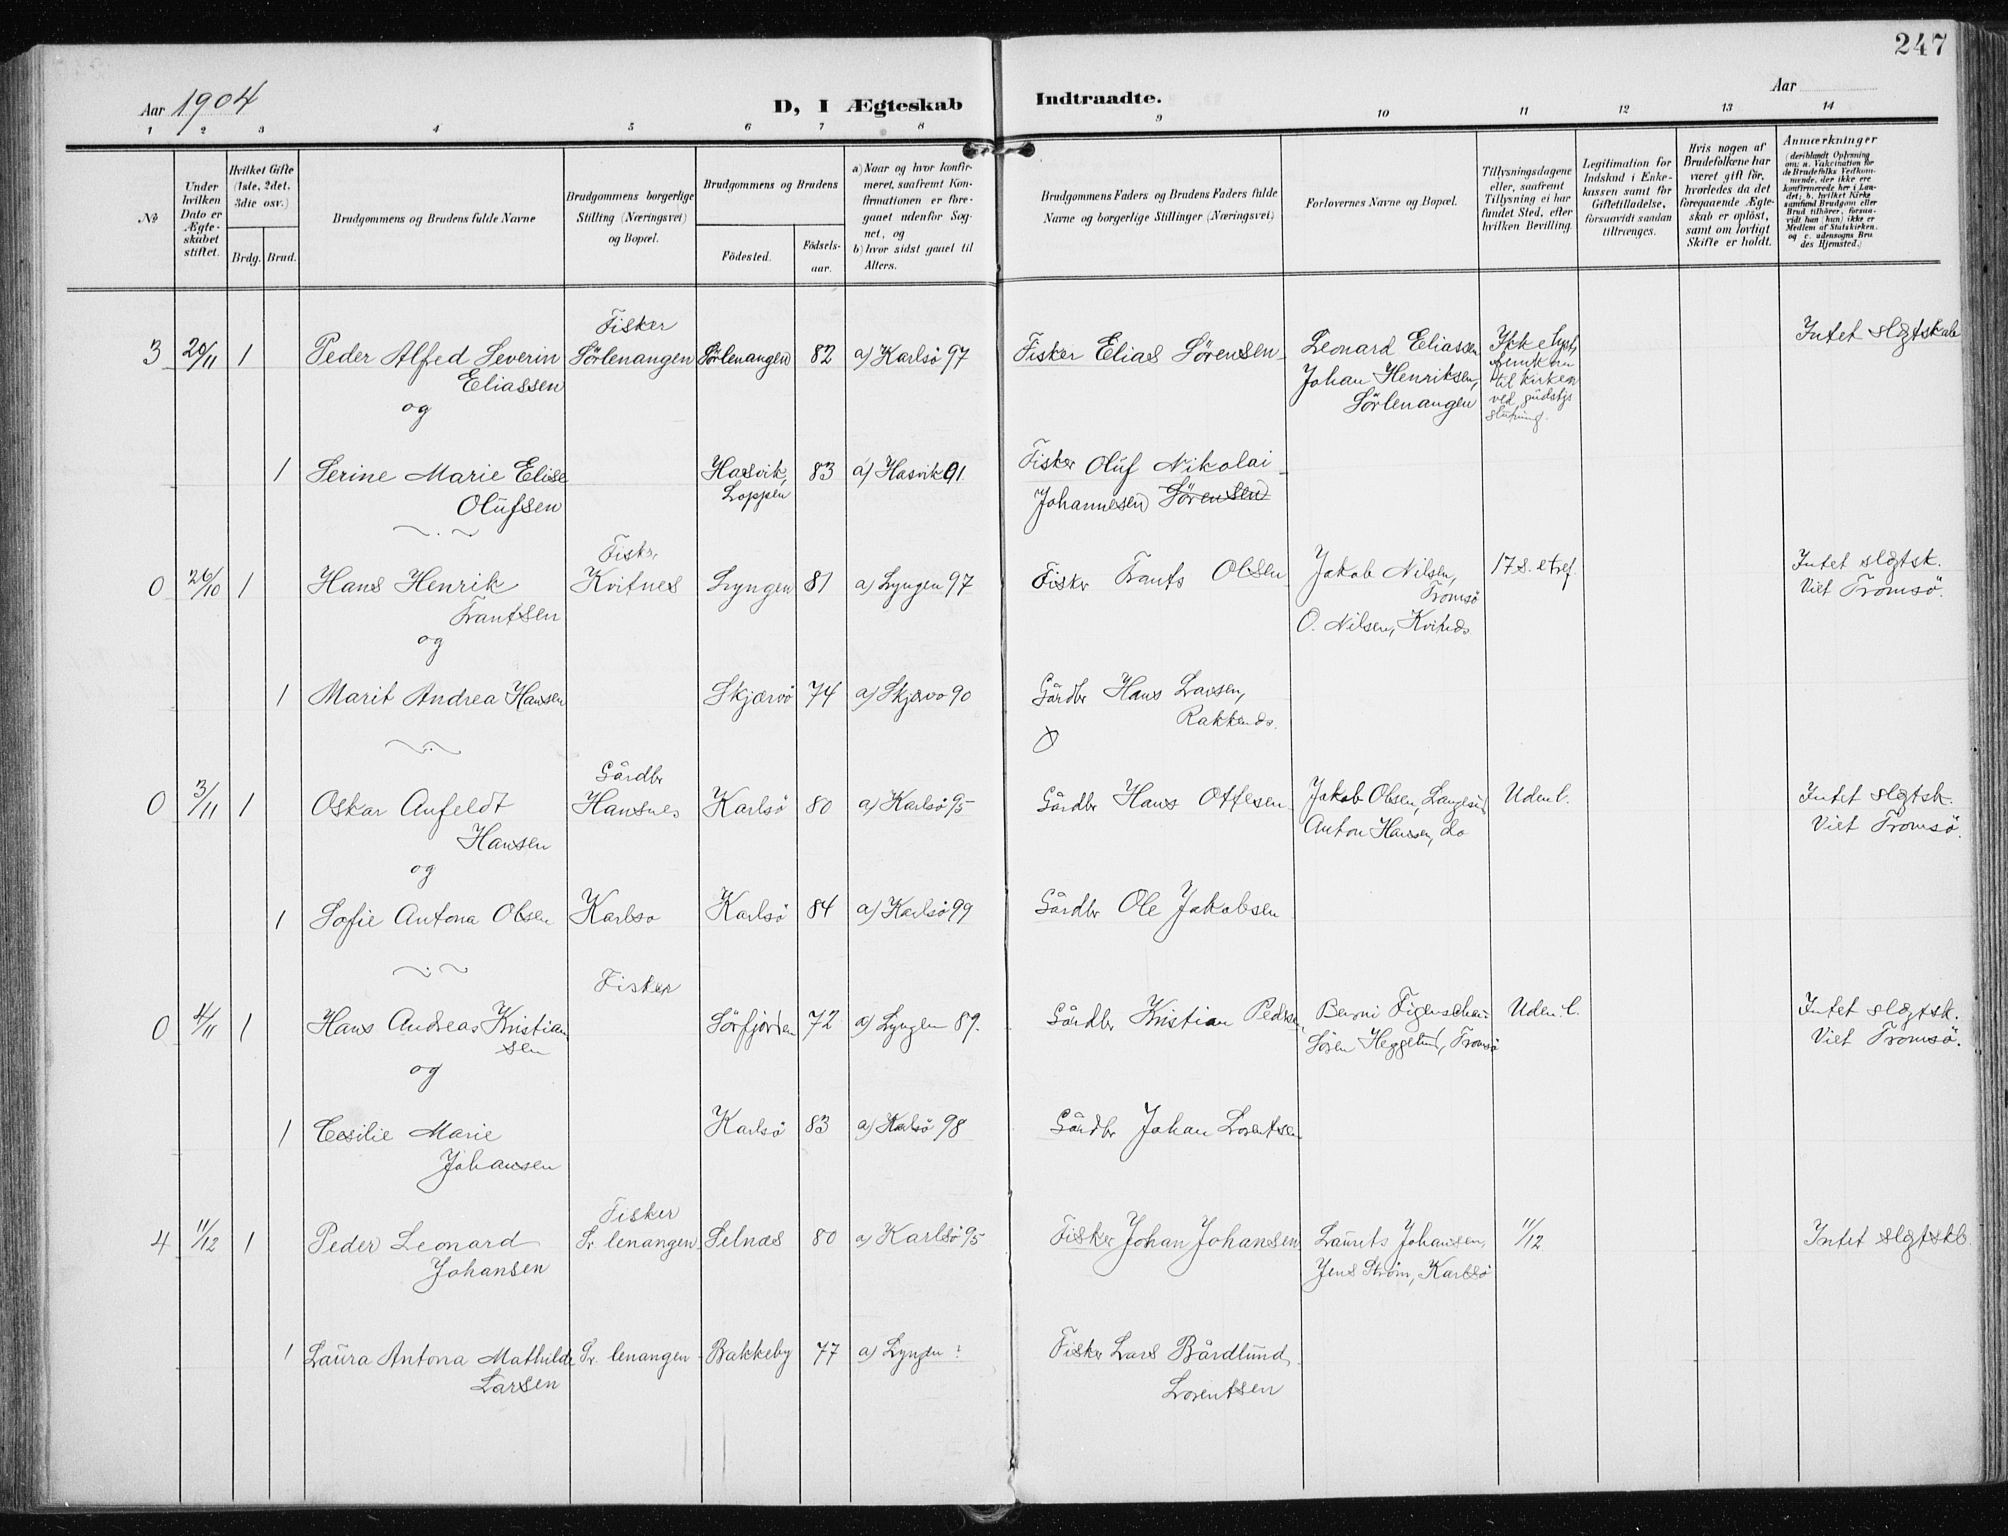 247
Aar 1904
D, I Ægteskab Indtraadte.
Aar
1 2 3 4 5 6 7 8 9 10 11 12 13 14
№
Under hvilken Dato er Ægteskabet stiftet.
Hvilket Gifte (1ste, 2det, 3die osv.)
Brdg. Brud.
Brudgommens og Brudens fulde Navne
Brudgommens borgerlige Stilling (Næringsvei) og Bopæl.
Brudgommens og Brudens
Födested.
Födselsaar.
a) Naar og hvor konfirmeret, saafremt Konfirmationen er foregaaet udenfor Sognet, og
b) hvor sidst gaaet til Alters.
Brudgommens Faders og Brudens Faders fulde Navne og borgerlige Stillinger (Næringsvei)
Forlovernes Navne og Bopæl.
Tillysningsdagene eller, saafremt Tillysning ei har fundet Sted, efter hvilken Bevilling.
Legitimation for Indskud i Enkekassen samt for Giftetilladelse, forsaavidt saadan tiltrænges.
Hvis nogen af Brudefolkene har været gift för, hvorledes da det foregaaende Ægteskab er oplöst, samt om lovligt Skifte er holdt.
Anmærkninger
(deriblandt Oplysning om: a. Vakcination for de Brudefolks Vedkommende, der ikke ere konfirmerede her i Landet; b. hvilket Kirkesamfund Brudgom eller Brud tilhörer, forsaavidt han (hun) ikke er Medlem af Statskirken, og c. udensogns Brudes Hjemsted.)
Fisker
3 20/11 1 Peder Alfred Severin Sörlenangen Sörlenangen 82 a) Karlsö 97 Fisker Elias Sörensen Leonard Eliassen Intet slægtskab
Eliassen Johan Henriksen,
og Sörlenangen
til kirken
ved gudstjs
1 Serine Marie Elise Hasvik, 83 a) Hasvik 91 Fisker Oluf Nikolai
Olufsen Loppen Johannesen Sörensen
Fisk.
0 26/10 1 Hans Henrik Kvitnes Lyngen 81 a) Lyngen 97 Fisker Frants Olsen Jakob Nilsen, 17 s. etref. Intet slægtsk.
Frantsen Tromsö Viet Tromsö.
og O. Nilsen, Kvitnæs
1 Marit Andrea Hansen Skjærvö 74 a) Skjærvö 90 Gårdbr Hans Larsen,
Rakkenæs.
Gårdbr
0 3/11 1 Oskar Anfeldt Hansnes Karlsö 80 a) Karlsö 95 Gårdbr Hans Ottesen Jakob Olsen, Langesund Uden l. Intet slægtsk.
Hansen Anton Hansen, do Viet Tromsö.
og
1 Sofie Antona Olsen Karlsö Karlsö 84 a) Karlsö 99 Gårdbr Ole Jakobsen
Fisker
0 4/11 1 Hans Andreas Kristian Sörfjorden 72 a) Lyngen 89. Gårdbr Kristian Pedersen, Bernni Figenschau Uden l. Intet slægtsk.
sen Sören Heggelund, Tromsö Viet Tromsö.
og
1 Cesilie Marie Karlsö 83 a) Karlsö 98 Gårdbr Johan Lorentsen
Johansen
Fisker
4 11/12 1 Peder Leonard Sr. lenangen Selnæs 80 a) Karlsö 95 Fisker Johan Johansen Laurits Johansen, 11/12 Intet slægtskb.
Johansen Jens Ström, Karlsö
1 Laura Antona Mathilde Sr. lenangen Bakkeby 77 a) Lyngen ? Fisker Lars Bårdlund
Larsen Lorentsen